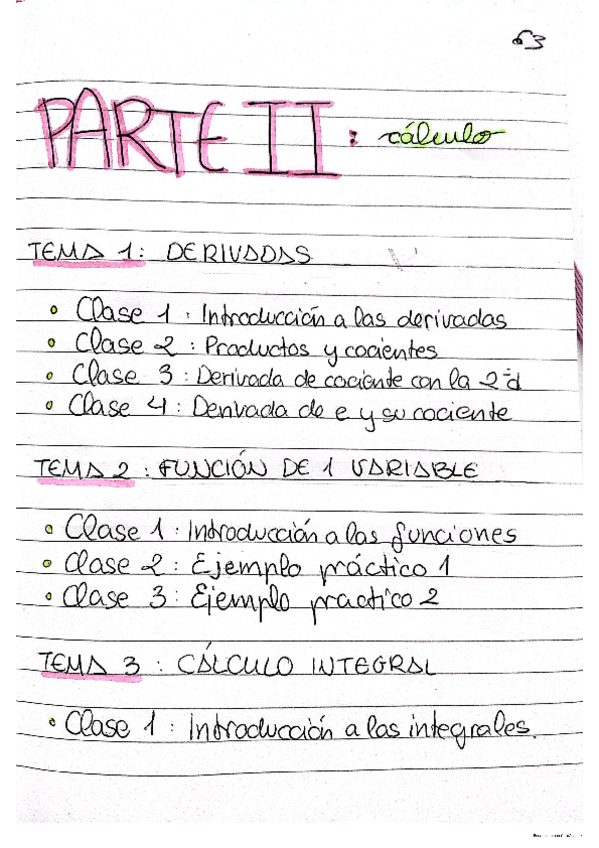 63
PARTE II : cálculo
TEMA 1: DERIVADAS
• Clase 1 : Introducción a las derivadas
• Clase 2 : Productos y cocientes
• Clase 3 : Derivada de cociente con la 2ªd
• Clase 4 : Derivada de e y su cociente
TEMA 2 : FUNCIÓN DE 1 VARIABLE
• Clase 1 : Introducción a las funciones
• Clase 2 : Ejemplo práctico 1
• Clase 3 : Ejemplo practico 2
TEMA 3 : CÁLCULO INTEGRAL
• Clase 1 : Introducción a las integrales.